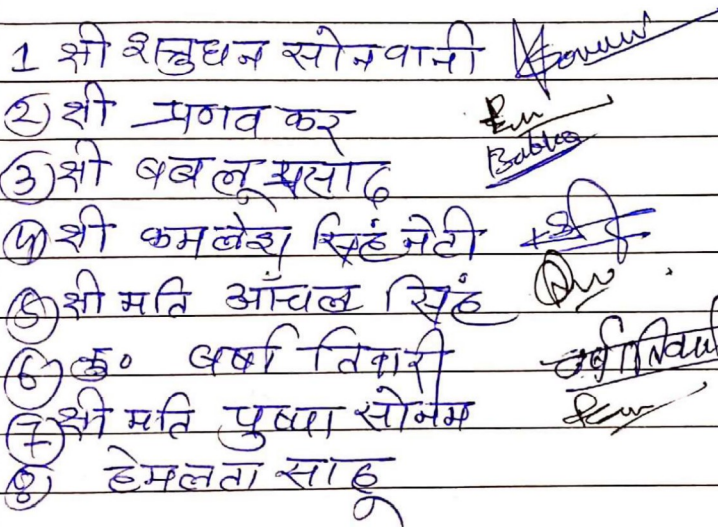 1 श्री शत्रुघन सोनवानी
② श्री प्रणव कर
③ श्री बबलू प्रसाद Bablu
④ श्री कमलेश सिंह नेटी
⑤ श्री मति आँचल सिंह
⑥ कु० वर्षा तिवारी
⑦ श्री मति पुष्पा सोनम
⑧ हेमलता साहू